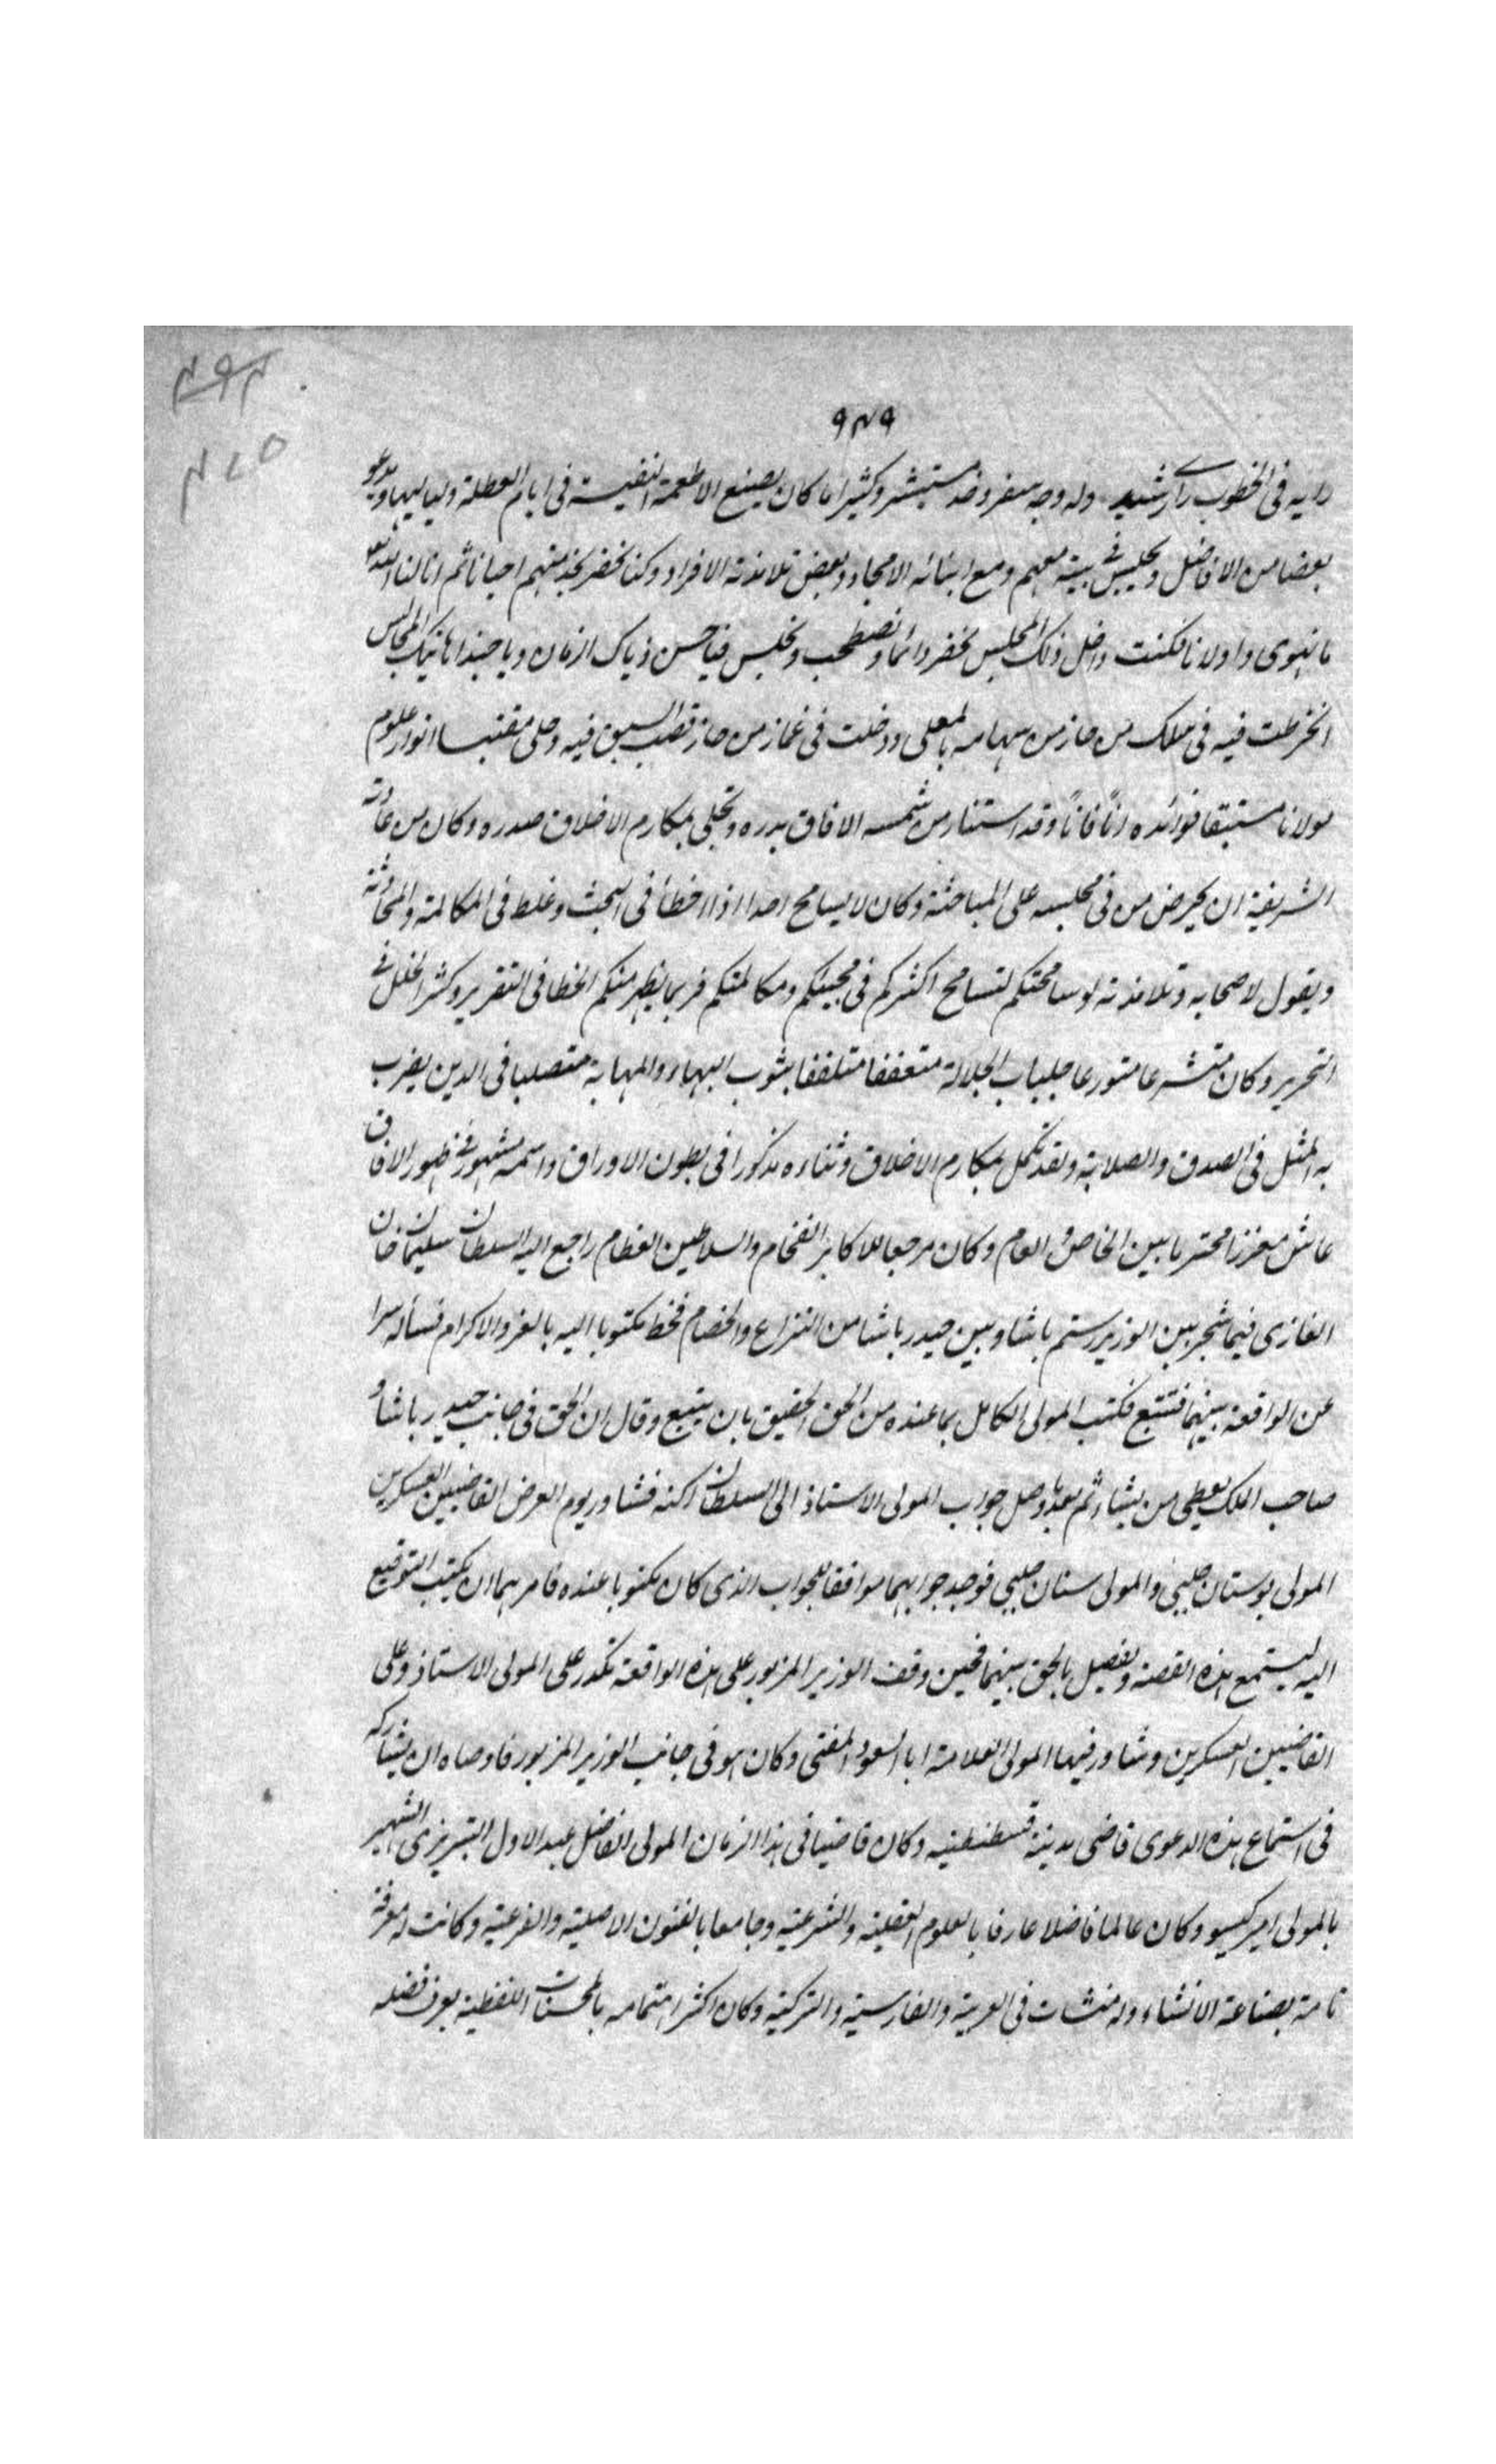 ٤٩٤
٤٨٥
٩٤٩
رايه فى الخطوب راى رشيد وله وجه مستبشر وكثيرا ما كان يصنع الاطعمة النفيسة فى ايام العطلة ولياليها ويدعو
بعضا من الافاضل ويجلس فى بيته معهم ومع ابنائه الامجاد وبعض تلامذته الافراد وكنا نحضر بخدمتهم احيانا ثم انا لنا الله تعالى
ما نهوى واولانا فكنت داخل ذلك المجلس نحضر دائما ونصطحب ونجلس فياحسن ذياك الزمان وياحبذا هاتيك المجالس
انخرطت فيه فى سلك من حاز من سهامه بالمعلى ودخلت فى غمار من حاز قصب السبق فيه وصلى مقتبسا انوار علوم
مولانا مستبقا فوائده انًا فانًا وقد استنار من شمسه الافاق بدره وتحلى بمكارم الاخلاق صدره وكان من عادته
الشريفة ان يحرض من فى مجلسه على المباحثة وكان لا يسامح احدا اذا اخطأ فى البحث وغلط فى المكالمة والمحادثة
ويقول لاصحابه وتلامذته لو سامحتكم لتسامح اكثركم فى مكالمتكم فربما يظهر منكم الخطا فى التقرير وكثر الخلل فى
التحرير وكان متشرعا متورعا جلباب الجلالة متعففا متلففا بثوب البهاء والمهابة متصلبا فى الدين يضرب
به المثل فى الصدق والصلابة ولقد تكمل بمكارم الاخلاق وثناءه مذكورا فى بطون الاوراق واسمه مشهور فى ظهور الافاق
عاش معززا محترما بين الخاص والعام وكان مرجعا للاكابر الفخام والسلاطين العظام راجع اليه السلطان سليمان خان
الغازى فيما شجر بين الوزير رستم باشا وبين حيدر باشا من النزاع والخصام فخط مكتوبا اليه بالعز والاكرام فسأله سرا
عن الواقعة بينهما فتتبع فكتب المولى الكامل بما عنده من الحق الحقيق بان يتبع وقال ان الحق فى جانب حيدر باشا و
صاحب الملك يعطى من يشاء ثم بعد ما وصل جواب المولى الاستاذ الى السلطان اكنه فشاور يوم العرض القاضيين العسكرين
المولى بوستان چلبى والمولى سنان چلبى فوجد جوابهما موافقا للجواب الذى كان مكتوبا عنده فامر بهما ان يكتب التوقيع
اليه ليستمع هذه القصة ويفصل بالحق بينهما فحين وقف الوزير المزبور على هذه الواقعة تكدر على المولى الاستاذ وعلى
القاضيين العسكرين وشاور فيها المولى العلامة ابا السعود المفتى وكان هو فى جانب الوزير المزبور فاوصاه ان يشاركه
فى استماع هذه الدعوى قاضى مدينة قسطنطنيه وكان قاضيا فى هذا الزمان المولى الفاضل عبد الاول التبريزى الشهير
بالمولى امير كيسو وكان عالما فاضلا عارفا بالعلوم العقلية والشرعية وجامعا بالفنون الاصلية والفرعية وكانت له معرفة
تامة بصناعة الانشاء وله منشات فى العربية والفارسية والتركية وكان اكثر اهتمامه بالمحسنات اللفظية يعرف فضله